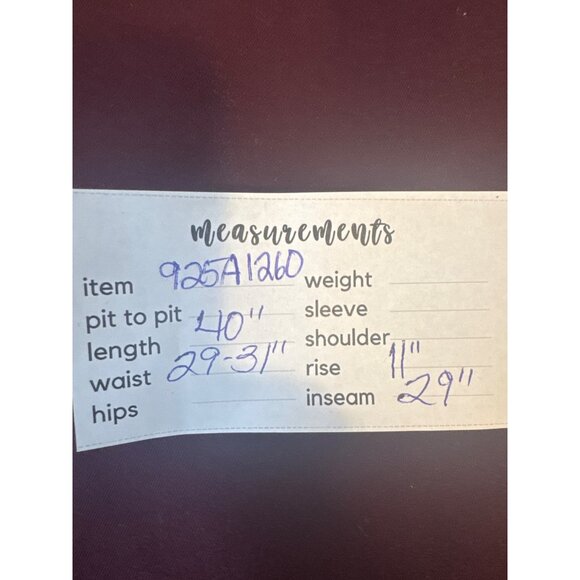 measurements
item 925A1260
pit to pit
length 40"
waist 29-31"
hips
weight
sleeve
shoulder
rise 11"
inseam 29"